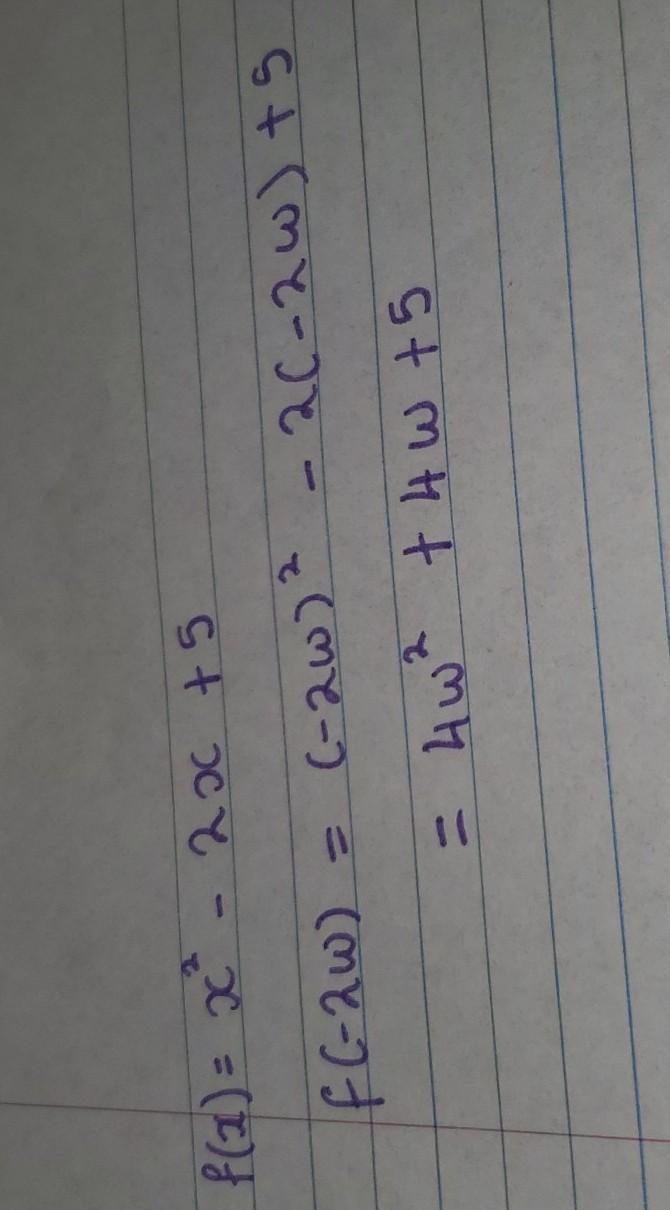 f(x) = x² - 2x + 5
f(-2w) = (-2w)² - 2(-2w) + 5
= 4w² + 4w + 5